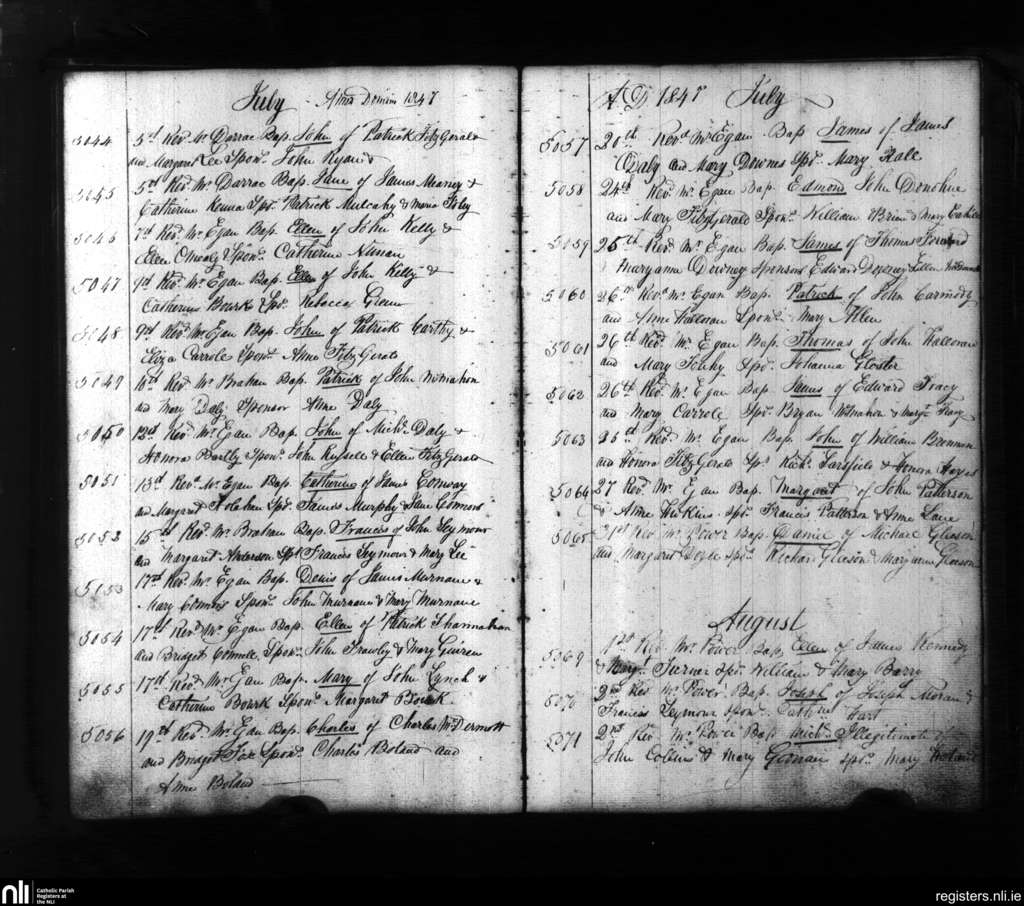 July Anno Domini 1847
5044 5th Revd Mr Darrac Bap. John of Patrick FitzGerald
and Margaret Lee Sponr John Ryan &
5045 5th Revd Mr Darrac Bap. Jane of James Meaney &
Catherine Kenna Spr Patrick Mulcahy & Maria Foly
5046 7th Revd Mr Egan Bap. Ellen of John Kelly &
Ellen Sponr Catherine
5047 9th Revd Mr Egan Bap. Ellen of John Kelly &
Catherine Bourk & Spr Rebecca Green
5048 9th Revd Mr Egan Bap. John of Patrick Carthy &
Eliza Carrole Sponr Anne FitzGerald
5049 10th Revd Mr Brahan Bap. Patrick of John McMahon
and Mary Daly Sponsor Anne Daly
5050 12th Revd Mr Egan Bap. John of Michl Daly &
Honora Bartly Sponr John Russell & Ellen FitzGerald
5051 13th Revd Mr Egan Bap. Catherine of James Conway
and Margaret Spr James Murphy & Jane Connors
5052 15th Revd Mr Brahan Bap. Francis of John Seymour
and Margaret Anderson Spr Francis Seymour & Mary Lee
5053 17th Revd Mr Egan Bap. Denis of James Murnane &
Mary Connors Sponr John Murnane & Mary Murnane
5054 17th Revd Mr Egan Bap. Ellen of Patrick Shannahan
and Bridget Connell Sponr John Frawly & Mary
5055 17th Revd Mr Egan Bap. Mary of John Lynch &
Catherine Bourk Sponr Margaret Bourk
5056 19th Revd Mr Egan Bap. Charles of Charles McDermott
and Bridget Sponr Charles Boland and
Anne Boland
A D 1847 July
5057 20th Revd Mr Egan Bap James of James
Daly and Mary Downes Spr Mary Hall
5058 24th Revd Mr Egan Bap. Edmond John Donohue
and Mary Fitzgerald Sponr William Brien & Mary
5059 25th Revd Mr Egan Bap. James of Thomas
Maryanne Downey Sponsors Edward Downey Ellen
5060 26th Revd Mr Egan Bap. Patrick of John Carmody
and Anne Halloran Sponr Mary Allen
5061 26th Revd Mr Egan Bap. Thomas of John Halloran
and Mary Spr Johanna Gloster
5062 26th Revd Mr Egan Bap James of Edward Tracy
and Mary Carrole Spr Bryan McMahon & Margt
5063 25th Revd Mr Egan Bap. John of William Brennan
and Honora FitzGerald Spr Richd Sarsfield & Honora Hayes
5064 27 Revd Mr Egan Bap. Margaret of John Patterson
& Anne Hickins Spr Francis Patterson & Anne Lane
5065 31st Revd Mr Power Bap. Daniel of Michael Gleeson
and Margaret Doyle Spr Richard Gleeson & Maryanne Gleeson
August
5069 1st Revd Mr Power Bap. Ellen of James Kennedy
& Margt Turner Spr William & Mary Barry
5070 2nd Revd Mr Power Bap. Joseph of Joseph Moran &
Francis Seymour Sponr Cathrine Hart
5071 2nd Revd Mr Power Bap. Michl Illegitimate of
John Collins & Mary Spr Mary
nli Catholic Parish
Registers at
the NLI
registers.nli.ie